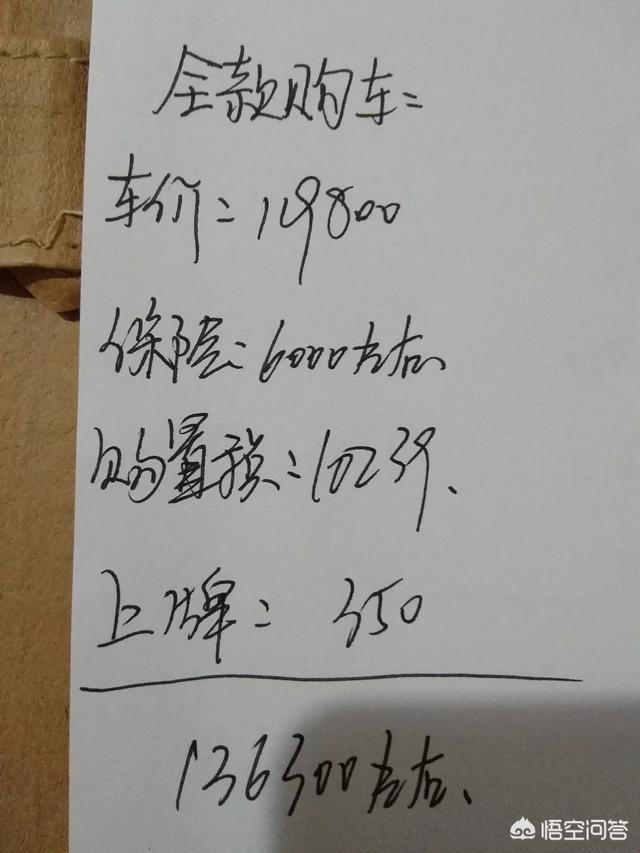 全款购车:
车价:119800
保险:6000左右、
购置税:10239、
上牌:350
136300左右、
悟空问答